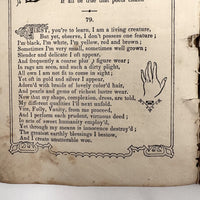 79.
FIRST, you're to learn, I am a living creature,
But yet, observe, I don't possess one feature;
I'm black, I'm white, I'm yellow, red and brown;
Sometimes I'm very small, sometimes well grown;
Slender and delicate I oft appear,
And frequently a coarse plump figure wear;
In rags am seen, and such a dirty plight,
All own I am not fit to come in sight;
Yet oft in gold and silver I appear,
Adorn'd with braids of lovely color'd hair,
And pearls and gems of richest lustre wear.
Now that my shape, complexion, dress, are told,
My different qualities I'll unfold.
Vice, Folly, Vanity, from me proceed,
And I perform each prudent, virtuous deed;
In acts of sweet humanity employ'd,
Yet through my means is innocence destroy'd;
The greatest earthly blessings I bestow,
And I create unutterable woe.